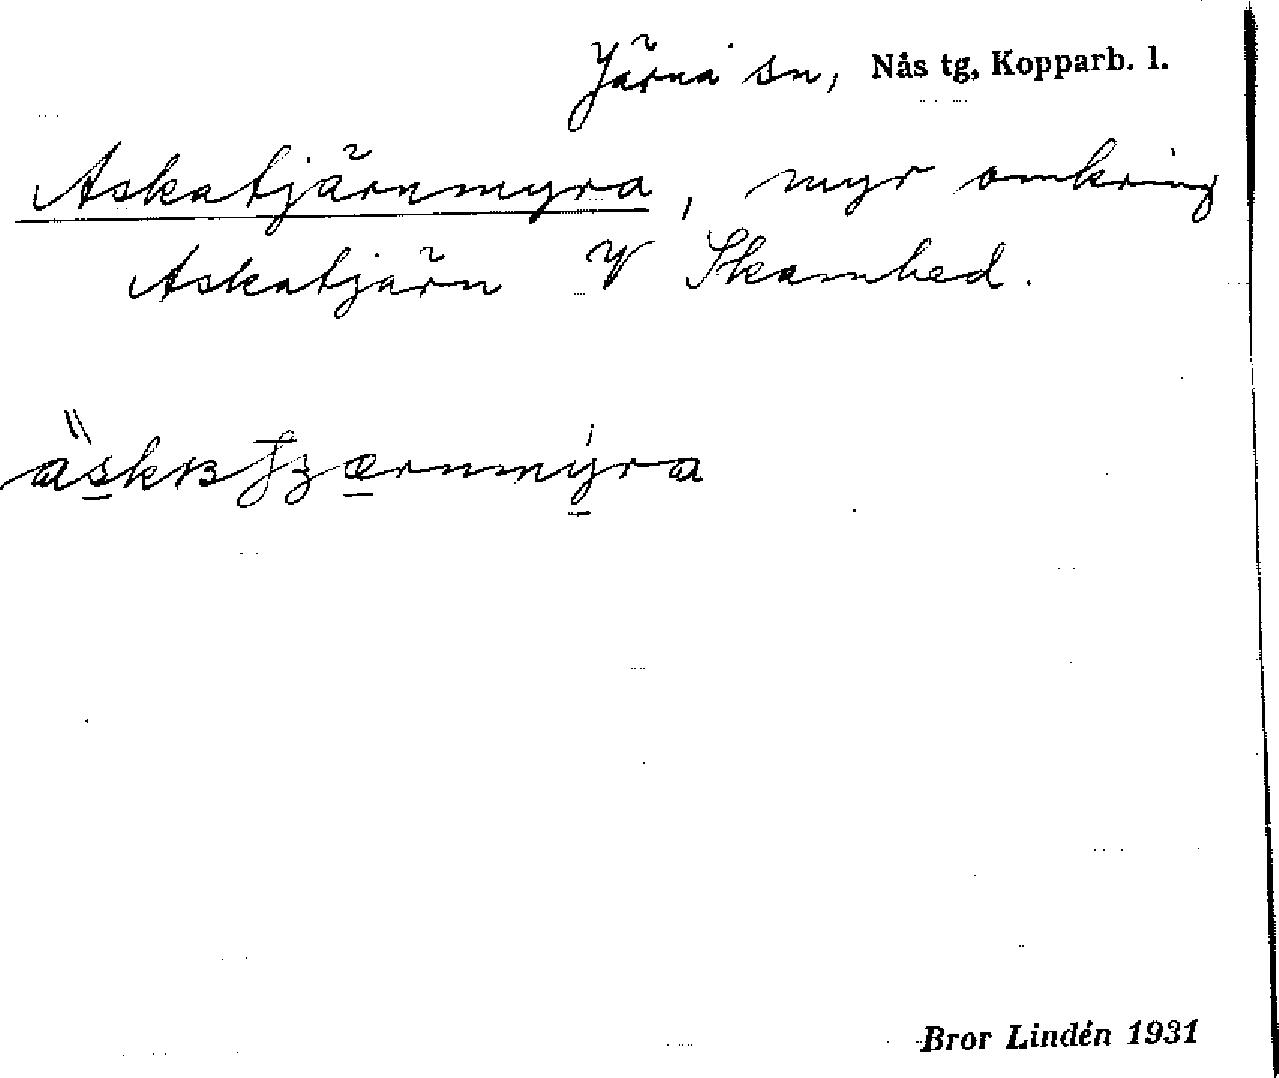 Järna sn, Nås tg, Kopparb. l.
Askatjärnmyra, myr omkring
Askatjärn V Skamhed.
Bror Lindén 1931